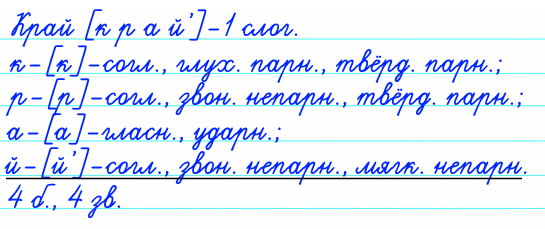 Край [к р а й’]–1 слог.
к–[к]–согл., глух. парн., твёрд. парн.;
р–[р]–согл., звон. непарн., твёрд. парн.;
а–[а]–гласн., ударн.;
й–[й’]–согл., звон. непарн., мягк. непарн.
4 б., 4 зв.